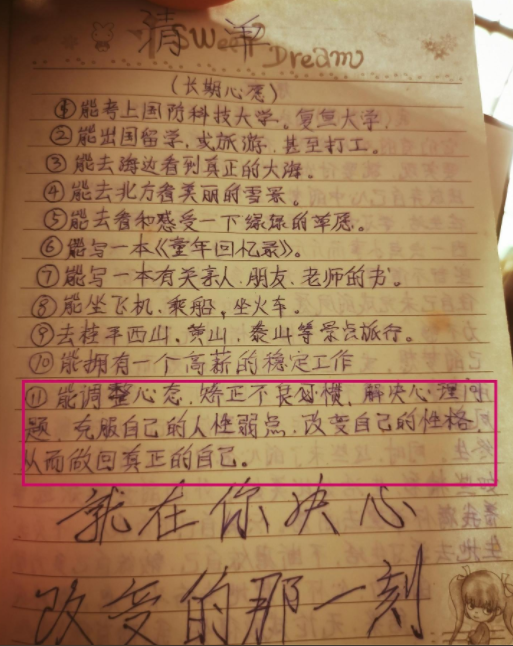 清单
Sweet Dream
(长期心愿)
①能考上国防科技大学。复旦大学.
②能出国留学,或旅游.甚至打工。
③能去海边看到真正的大海。
④能去北方看美丽的雪景。
⑤能去看和感受一下绿绿的草原。
⑥能写一本《童年回忆录》。
⑦能写一本有关亲人.朋友.老师的书。
⑧能坐飞机.乘船,坐火车。
⑨去桂平西山.黄山.泰山等景点旅行。
⑩能拥有一个高薪的稳定工作
⑪能调整心态.矫正不良习惯、解决心理问
题.克服自己的人性弱点.改变自己的性格
从而做回真正的自己。
就在你决心
改变的那一刻